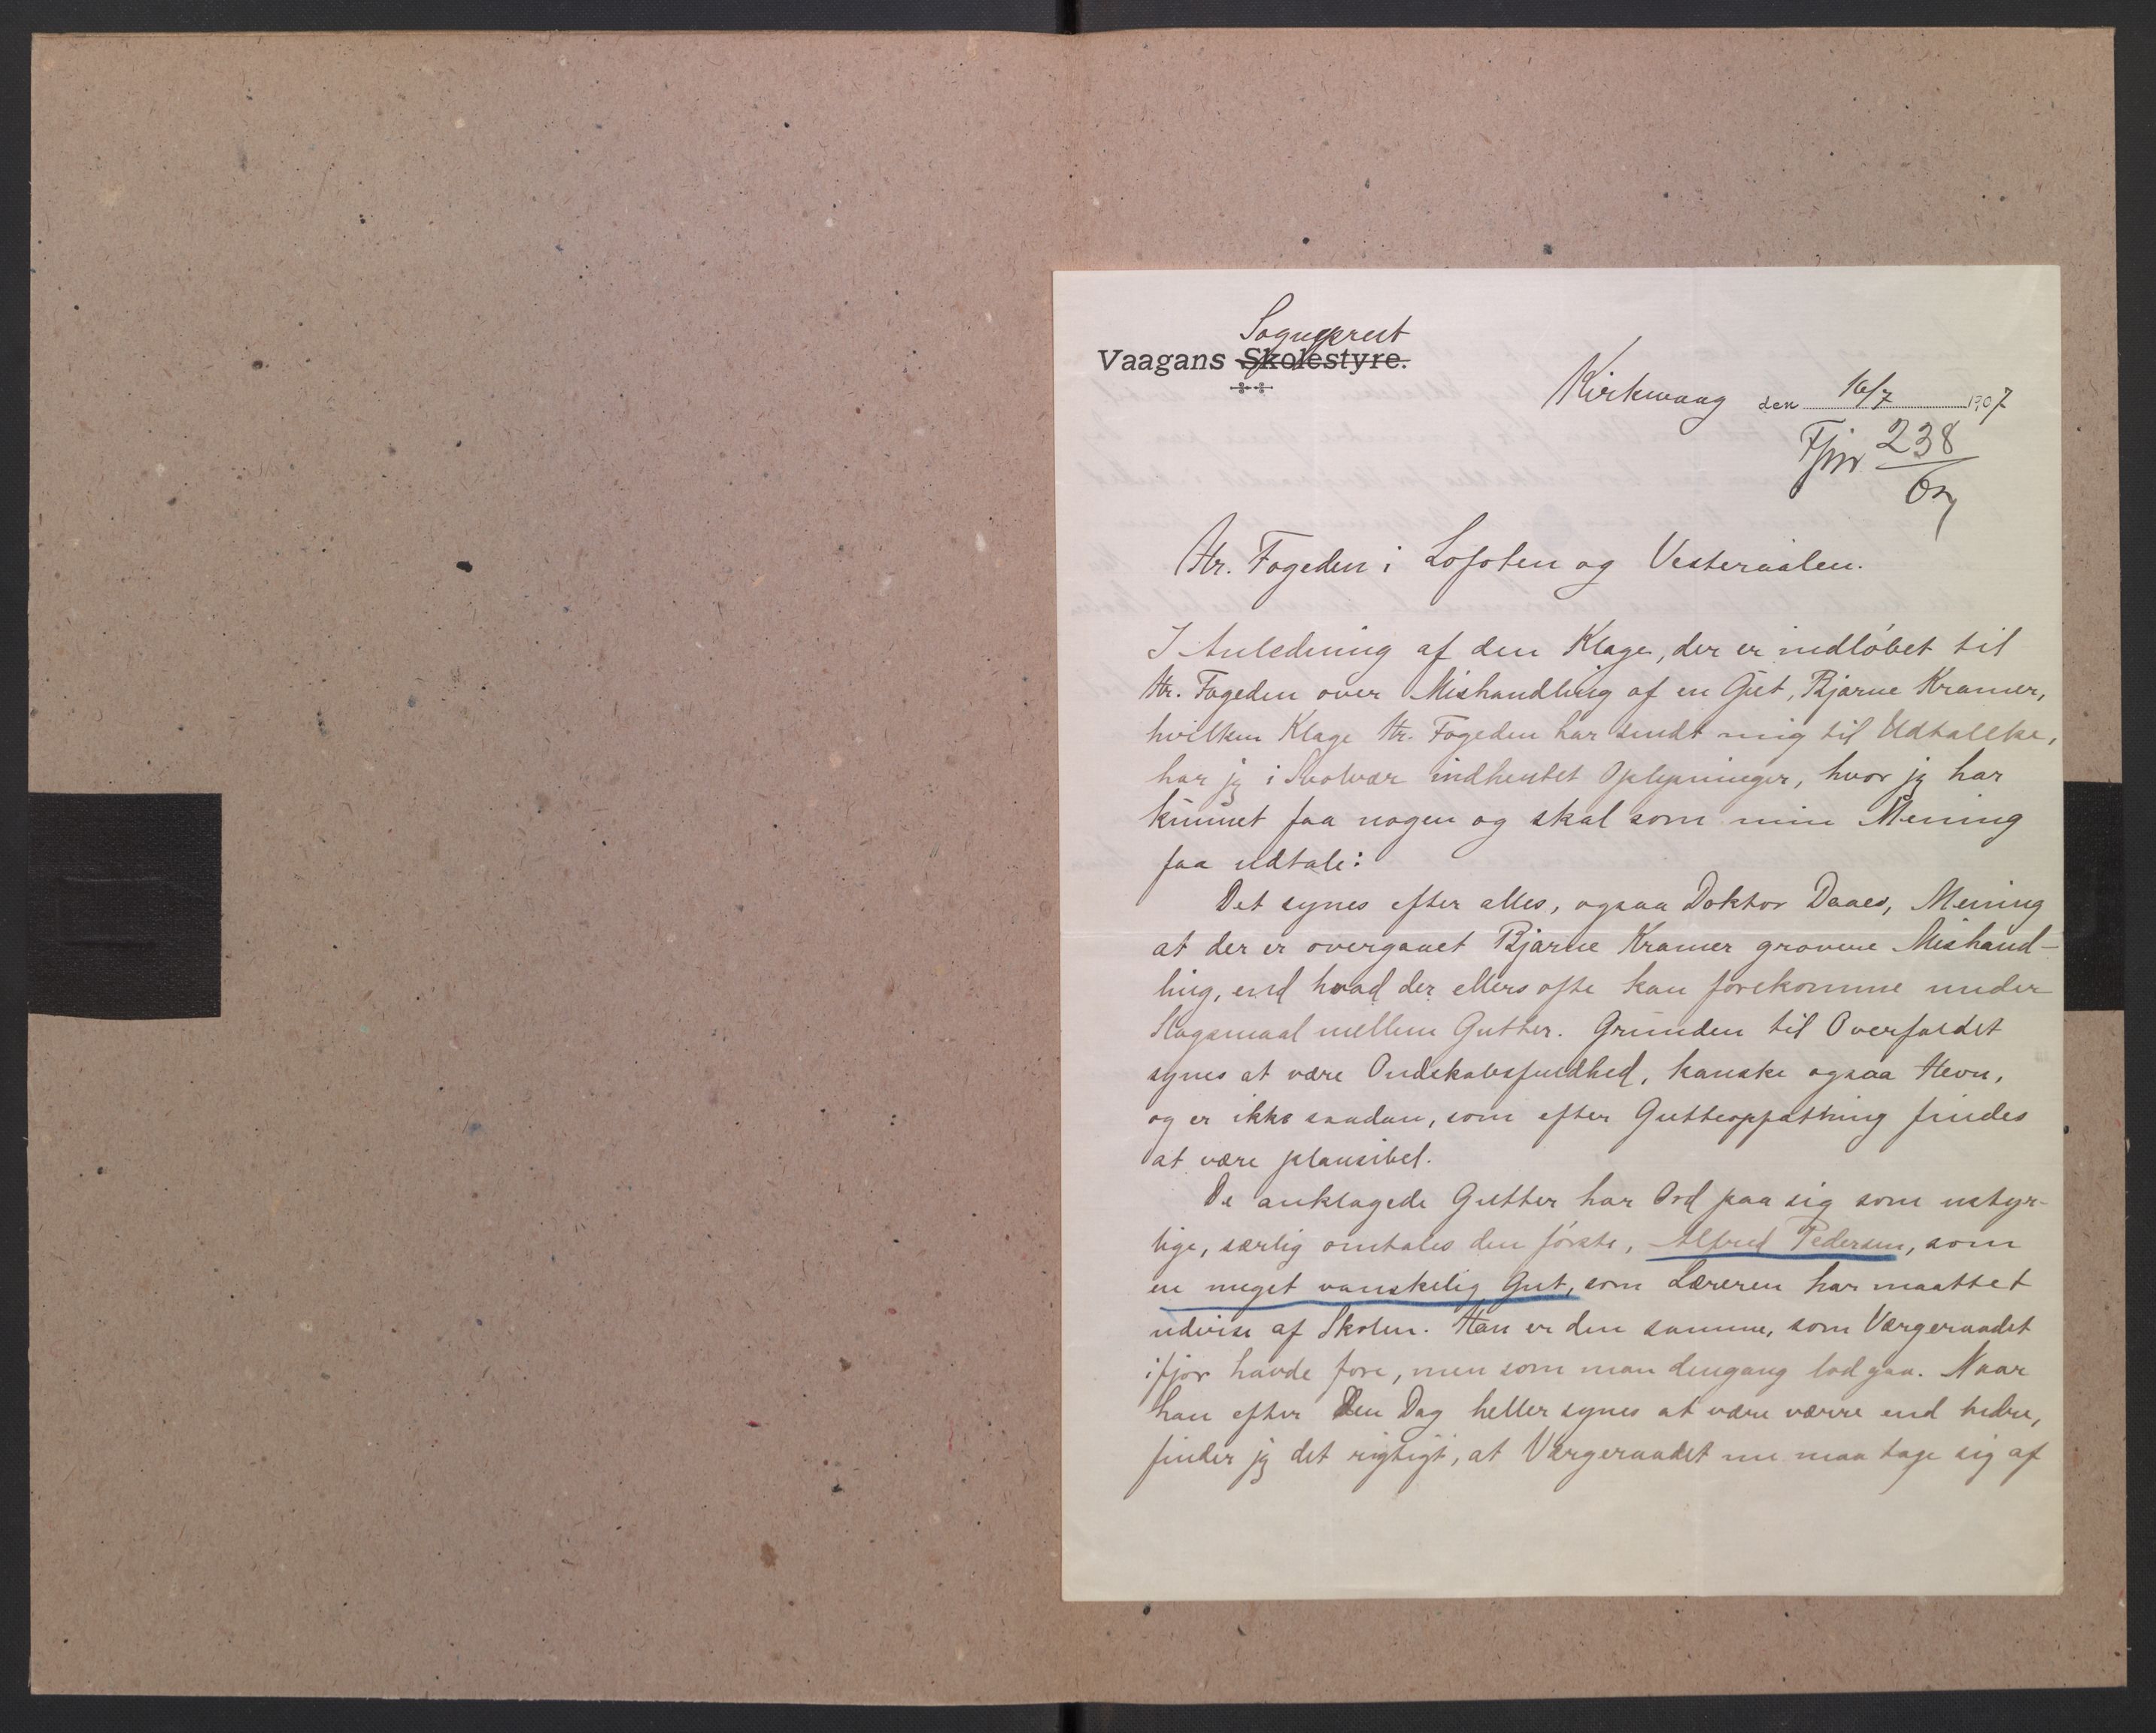 Sogneprest
Vaagans Skolestyre.
Kirkevaag den 16/7 1907
Fjnr 238
07
Hr. Fogeden i Lofoten og Vesteraalen.
I Anledning af den Klage, der er indløbet til
Hr. Fogeden over Mishandling af en Gut, Bjarne Kramer,
hvilken Klage Hr. Fogeden har sendt mig til Udtalelse,
har jg i Svolvær indhentet Oplysninger, hvor jg har
kunnet faa nogen og skal som min Mening
faa udtale:
Det synes efter alles, ogsaa Doktor Daaes, Mening
at der er overgaaet Bjarne Kramer grovere Mishand-
ling, end hvad der ellers ofte kan forekomme under
Slagsmaal mellem Gutter. Grunden til Overfaldet
synes at være Ondskabsfuldhed, kanske ogsaa Hevn,
og er ikke saadan, som efter Gutteopfatning findes
at være plausibel.
De anklagede Gutter har Ord paa sig som ustyr-
lige, særlig omtales den første, Alfred Pedersen, som
en meget vanskelig Gut, som Læreren har maattet
udvise af Skolen. Han er den samme, som Værgeraadet
ifjor havde fore, men som man dengang lod gaa. Naar
han efter den Dag heller synes at være værre end bedre,
finder jg det rigtigt, at Værgeraadet nu maa tage sig af